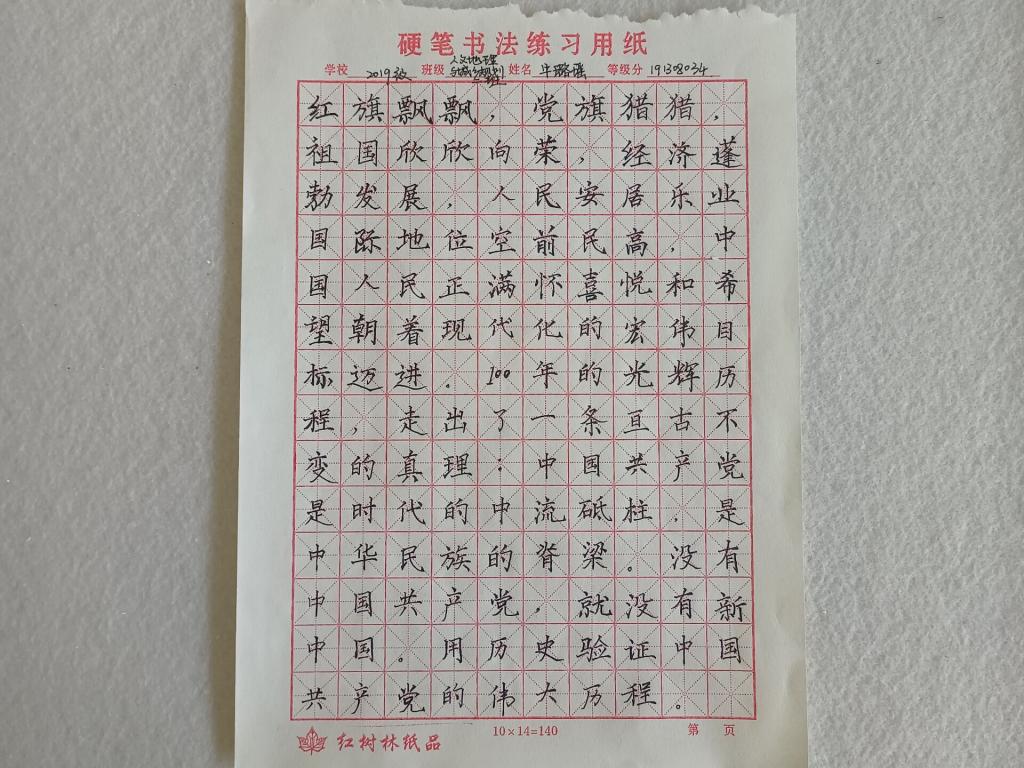 硬笔书法练习用纸
学校 2019级 班级 人文地理 姓名 牛璐瑶 等级分 191308034
红旗飘飘，党旗猎猎，
祖国欣欣向荣，经济蓬
勃发展，人民安居乐业
国际地位空前民高，中
国人民正满怀喜悦和希
望朝着现代化的宏伟目
标迈进。100年的光辉历
程，走出了一条亘古不
变的真理：中国共产党
是时代的中流砥柱，是
中华民族的脊梁。没有
中国共产党，就没有新
中国。用历史验证中国
共产党的伟大历程。
红树林纸品 10×14=140 第 页